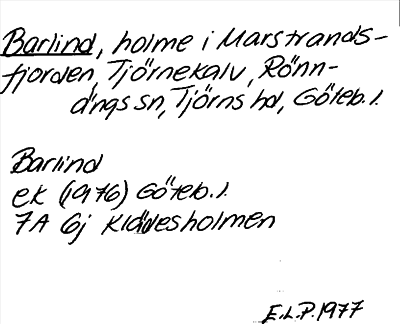 Barlind, holme i Marstrands-
fjorden, Tjörnekalv, Rönn-
ängs sn, Tjörns hd, Göteb. l.
Barlind
ek (1976) Göteb. l.
7A 6j Klädesholmen
E.L.P. 1977